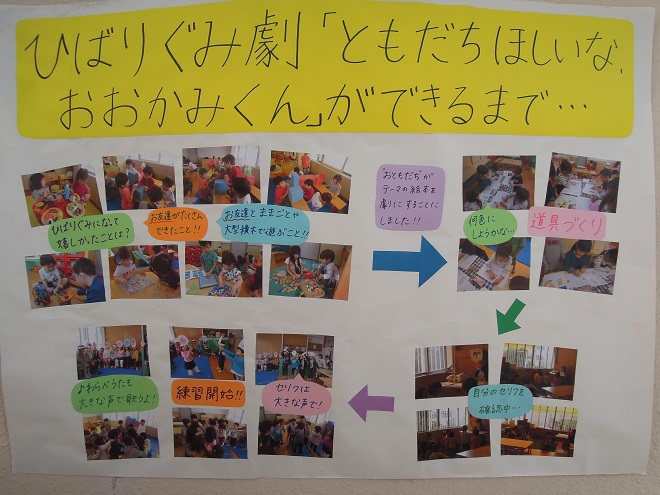 ひばりぐみ劇「ともだちほしいな、
おおかみくん」ができるまで…
ひばりぐみになって
嬉しかったことは？
お友達がたくさん
できたこと！！
お友達とままごとや
大型積木で遊ぶこと！！
"おともだち"が
テーマの絵本を
劇にすることに
しました！！
何色に
しようかな…
道具づくり
自分のセリフを
確認中…
セリフは
大きな声で！
練習開始！！
♪わらべうたも
大きな声で歌うよ！